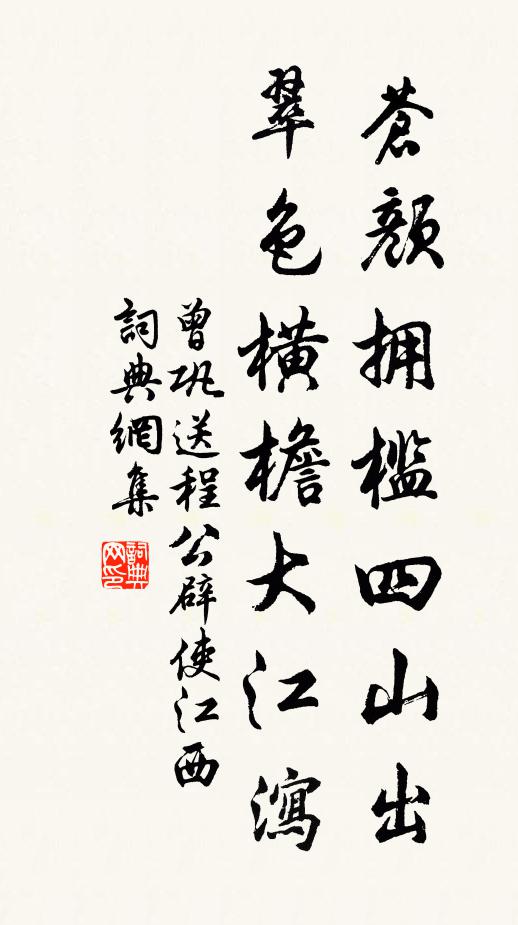 蒼顏拥檻四山出
翠色橫檐大江瀉
曾巩送程公辟使江西
詞典網集
詞典网印